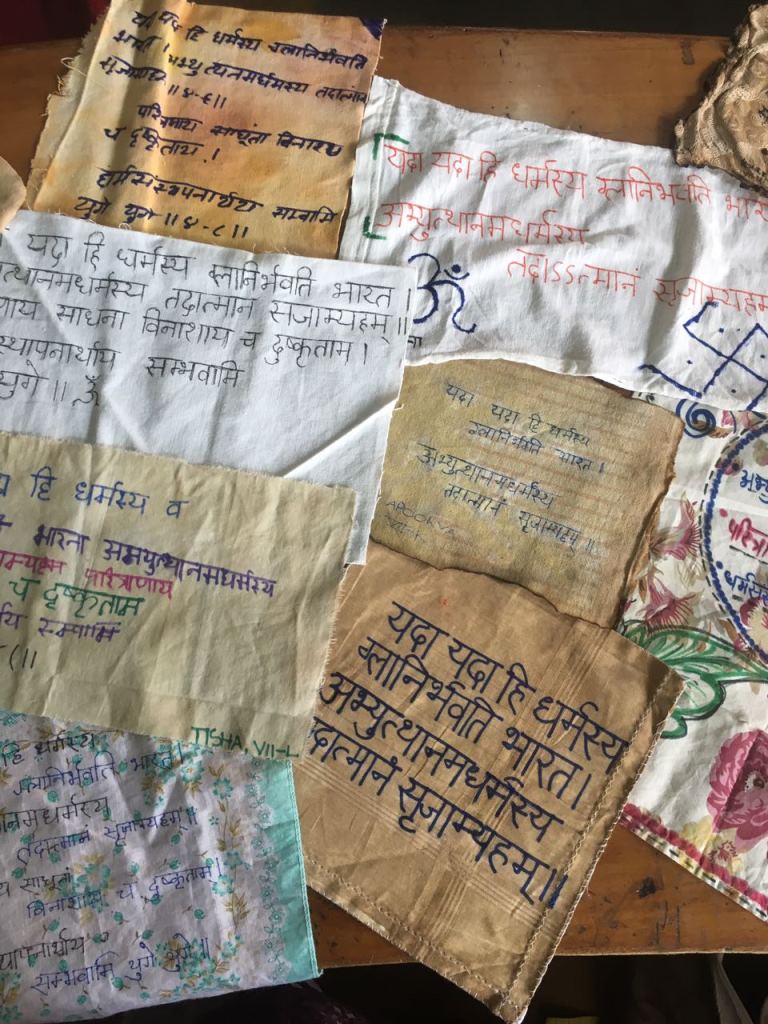 यदा यदा हि धर्मस्य ग्लानिर्भवति
भारत ।
अभ्युत्थानमधर्मस्य तदात्मान
सृजाम्यहम
॥४-९॥
परित्राणाय साधूंता विनाश
च दुष्कृताय ।
धर्मसंस्थापनार्थाय सम्वामि
युगे युगे ॥४-८॥
यदा यदा हि धर्मस्य ग्लानिभवति भार
अभ्युत्थानमधर्मस्य
तदाऽऽत्मानं सृजाम्यहम
ॐ
यदा हि धर्मस्य ग्लानिर्भवति भारत ।
त्थानमधर्मस्य तदात्मान सृजाम्यहम् ॥
णाय साधना विनाशाय च दुष्कृताम ।
स्थापनार्थाय सम्भवामि
युगे ॥ ॐ
यदा यदा हि धर्मस्य
ग्लानिर्भवति भारत ।
अभ्युत्थानमधर्मस्य
तदात्मानं सृजाम्यहम् ॥
APOORVA
हि धर्मस्य व
भारना अभ्रयुत्थानमधर्मस्य
परित्राणाय
च दृष्कृताम
सम्वामि
८॥
TISHA, VII-L
यदा यदा हि धर्मस्य
ग्लानिर्भवति भारत ।
अभ्युत्थानमधर्मस्य
दात्मानं सृजाम्यहम् ॥
हि धर्मस्य
ग्लानिर्भवति भारत ।
नमधर्मस्य
तदात्मानं सृजाम्यहम् ॥
साधूनां
विनाशाय च दुष्कृताम् ।
थापनार्थाय
सम्भवामि युगे युगे ॥
अभ्यु
परित्रा
धर्मसं